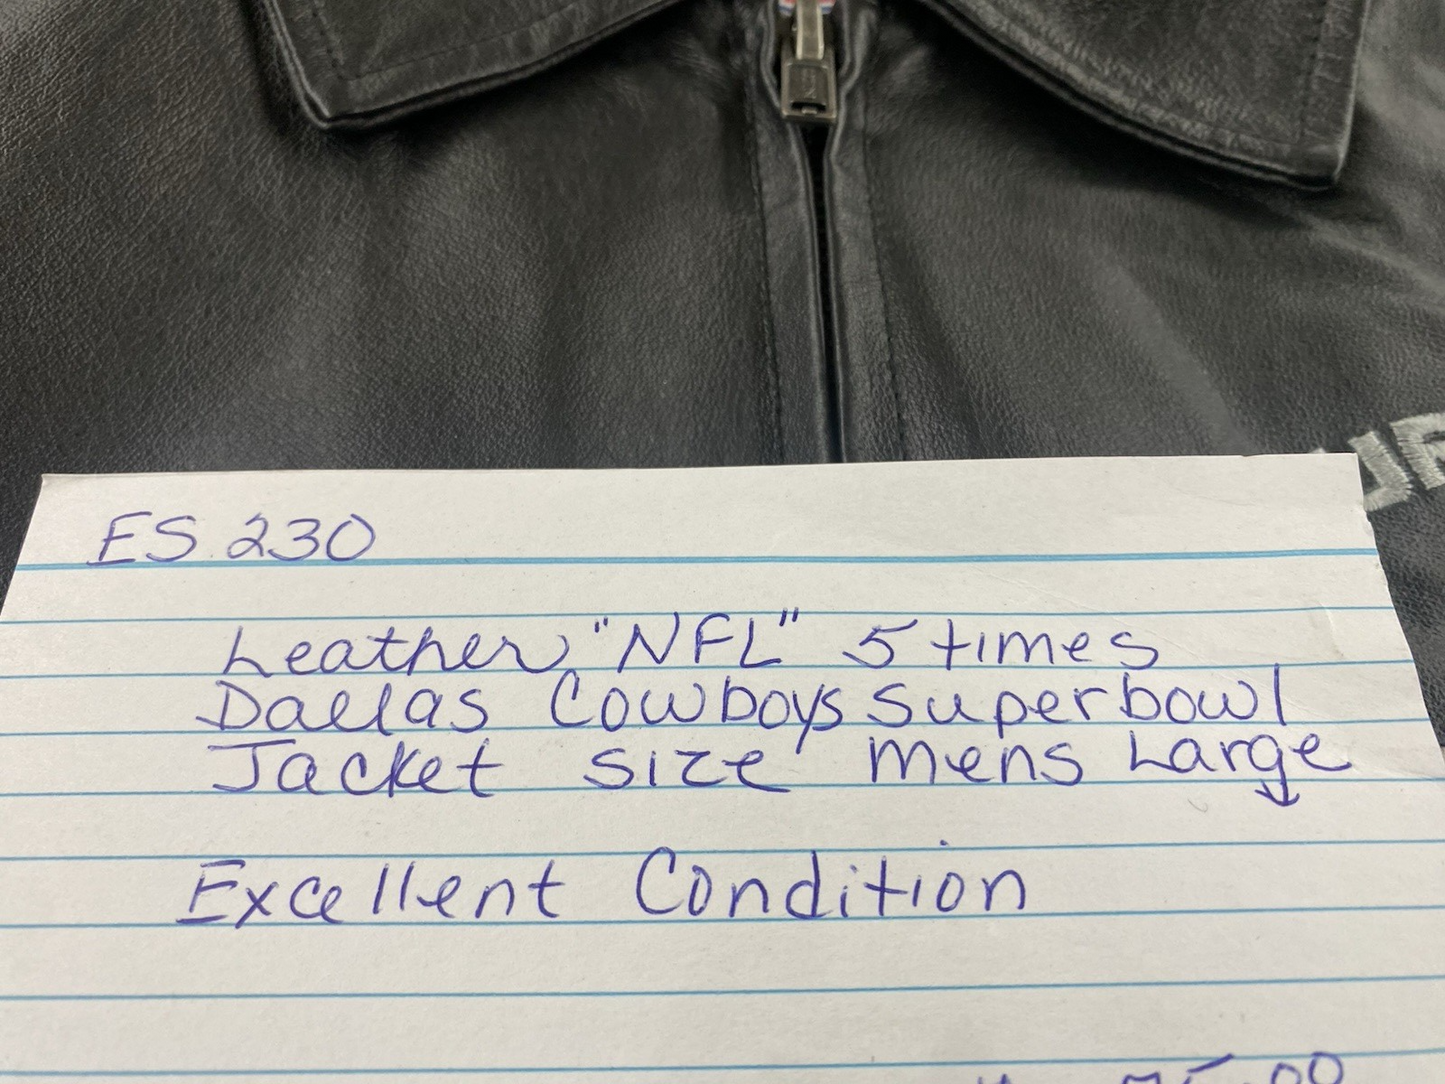 ES 230
Leather "NFL" 5 times
Dallas Cowboys Superbowl
Jacket size mens Large
Excellent Condition